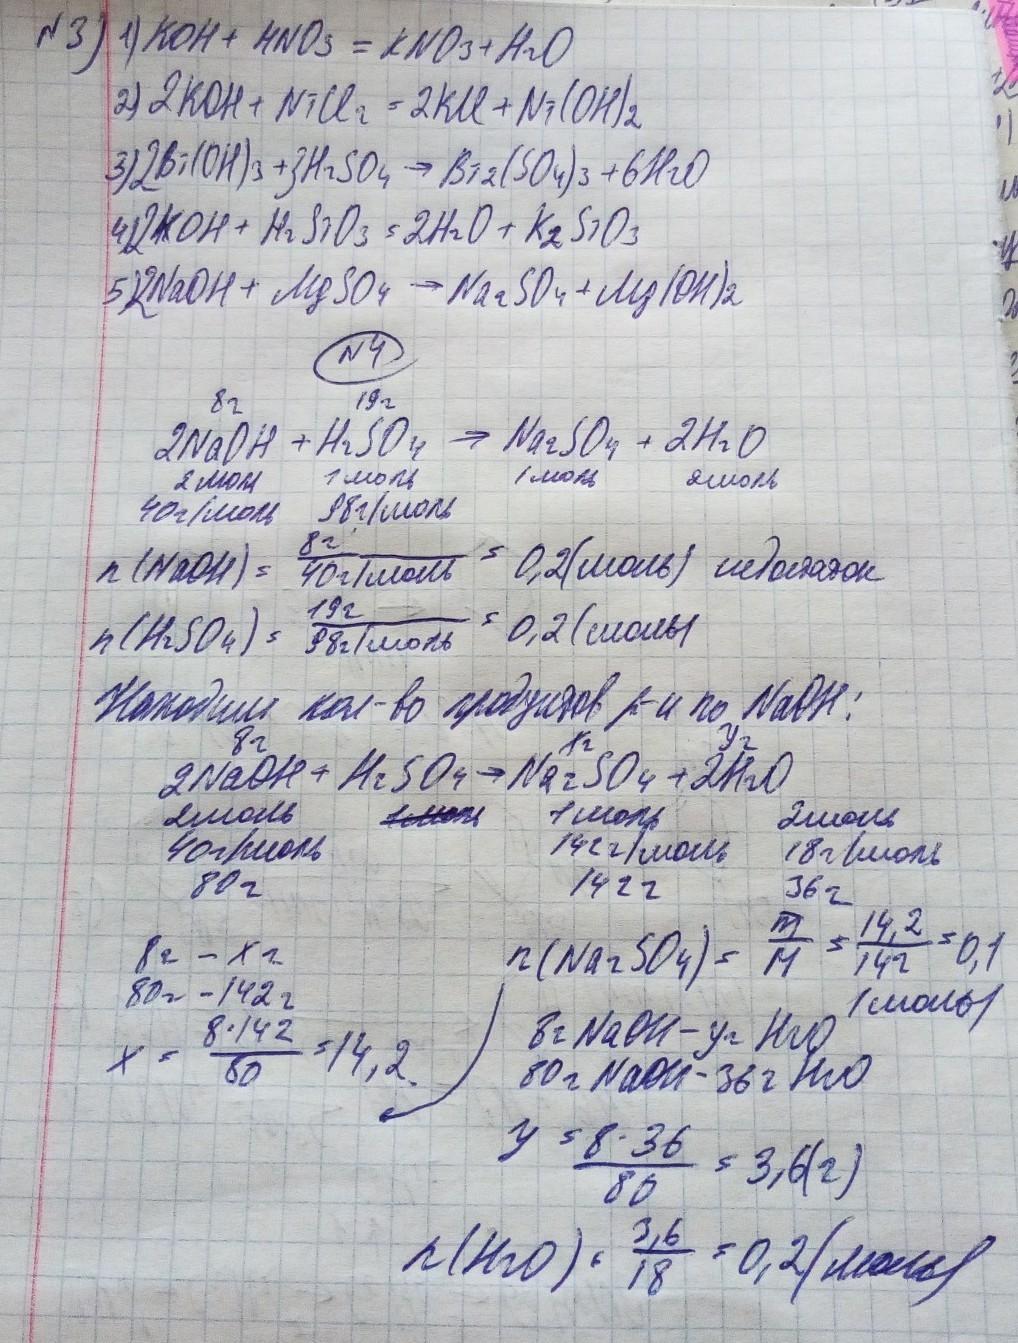 №3) 1) KOH + HNO3 = KNO3 + H2O
2) 2KOH + NiCl2 = 2KCl + Ni(OH)2
3) 2Bi(OH)3 + 3H2SO4 → Bi2(SO4)3 + 6H2O
4) 2KOH + H2SiO3 = 2H2O + K2SiO3
5) 2NaOH + MgSO4 → Na2SO4 + Mg(OH)2
№4
8г 19г
2NaOH + H2SO4 → Na2SO4 + 2H2O
2моль 1моль 1моль 2моль
40г/моль 98г/моль
n(NaOH) = 8г / 40г/моль = 0,2(моль) недостаток
n(H2SO4) = 19г / 98г/моль = 0,2(моль)
Находим кол-во продуктов р-и по NaOH:
8г xг yг
2NaOH + H2SO4 → Na2SO4 + 2H2O
2моль 1моль 1моль 2моль
40г/моль 142г/моль 18г/моль
80г 142г 36г
8г - xг
80г - 142г
x = 8·142 / 80 = 14,2.
n(Na2SO4) = m / M = 14,2 / 142 = 0,1
(моль)
8г NaOH - yг H2O
80г NaOH - 36г H2O
y = 8·36 / 80 = 3,6(г)
n(H2O) = 3,6 / 18 = 0,2(моль)